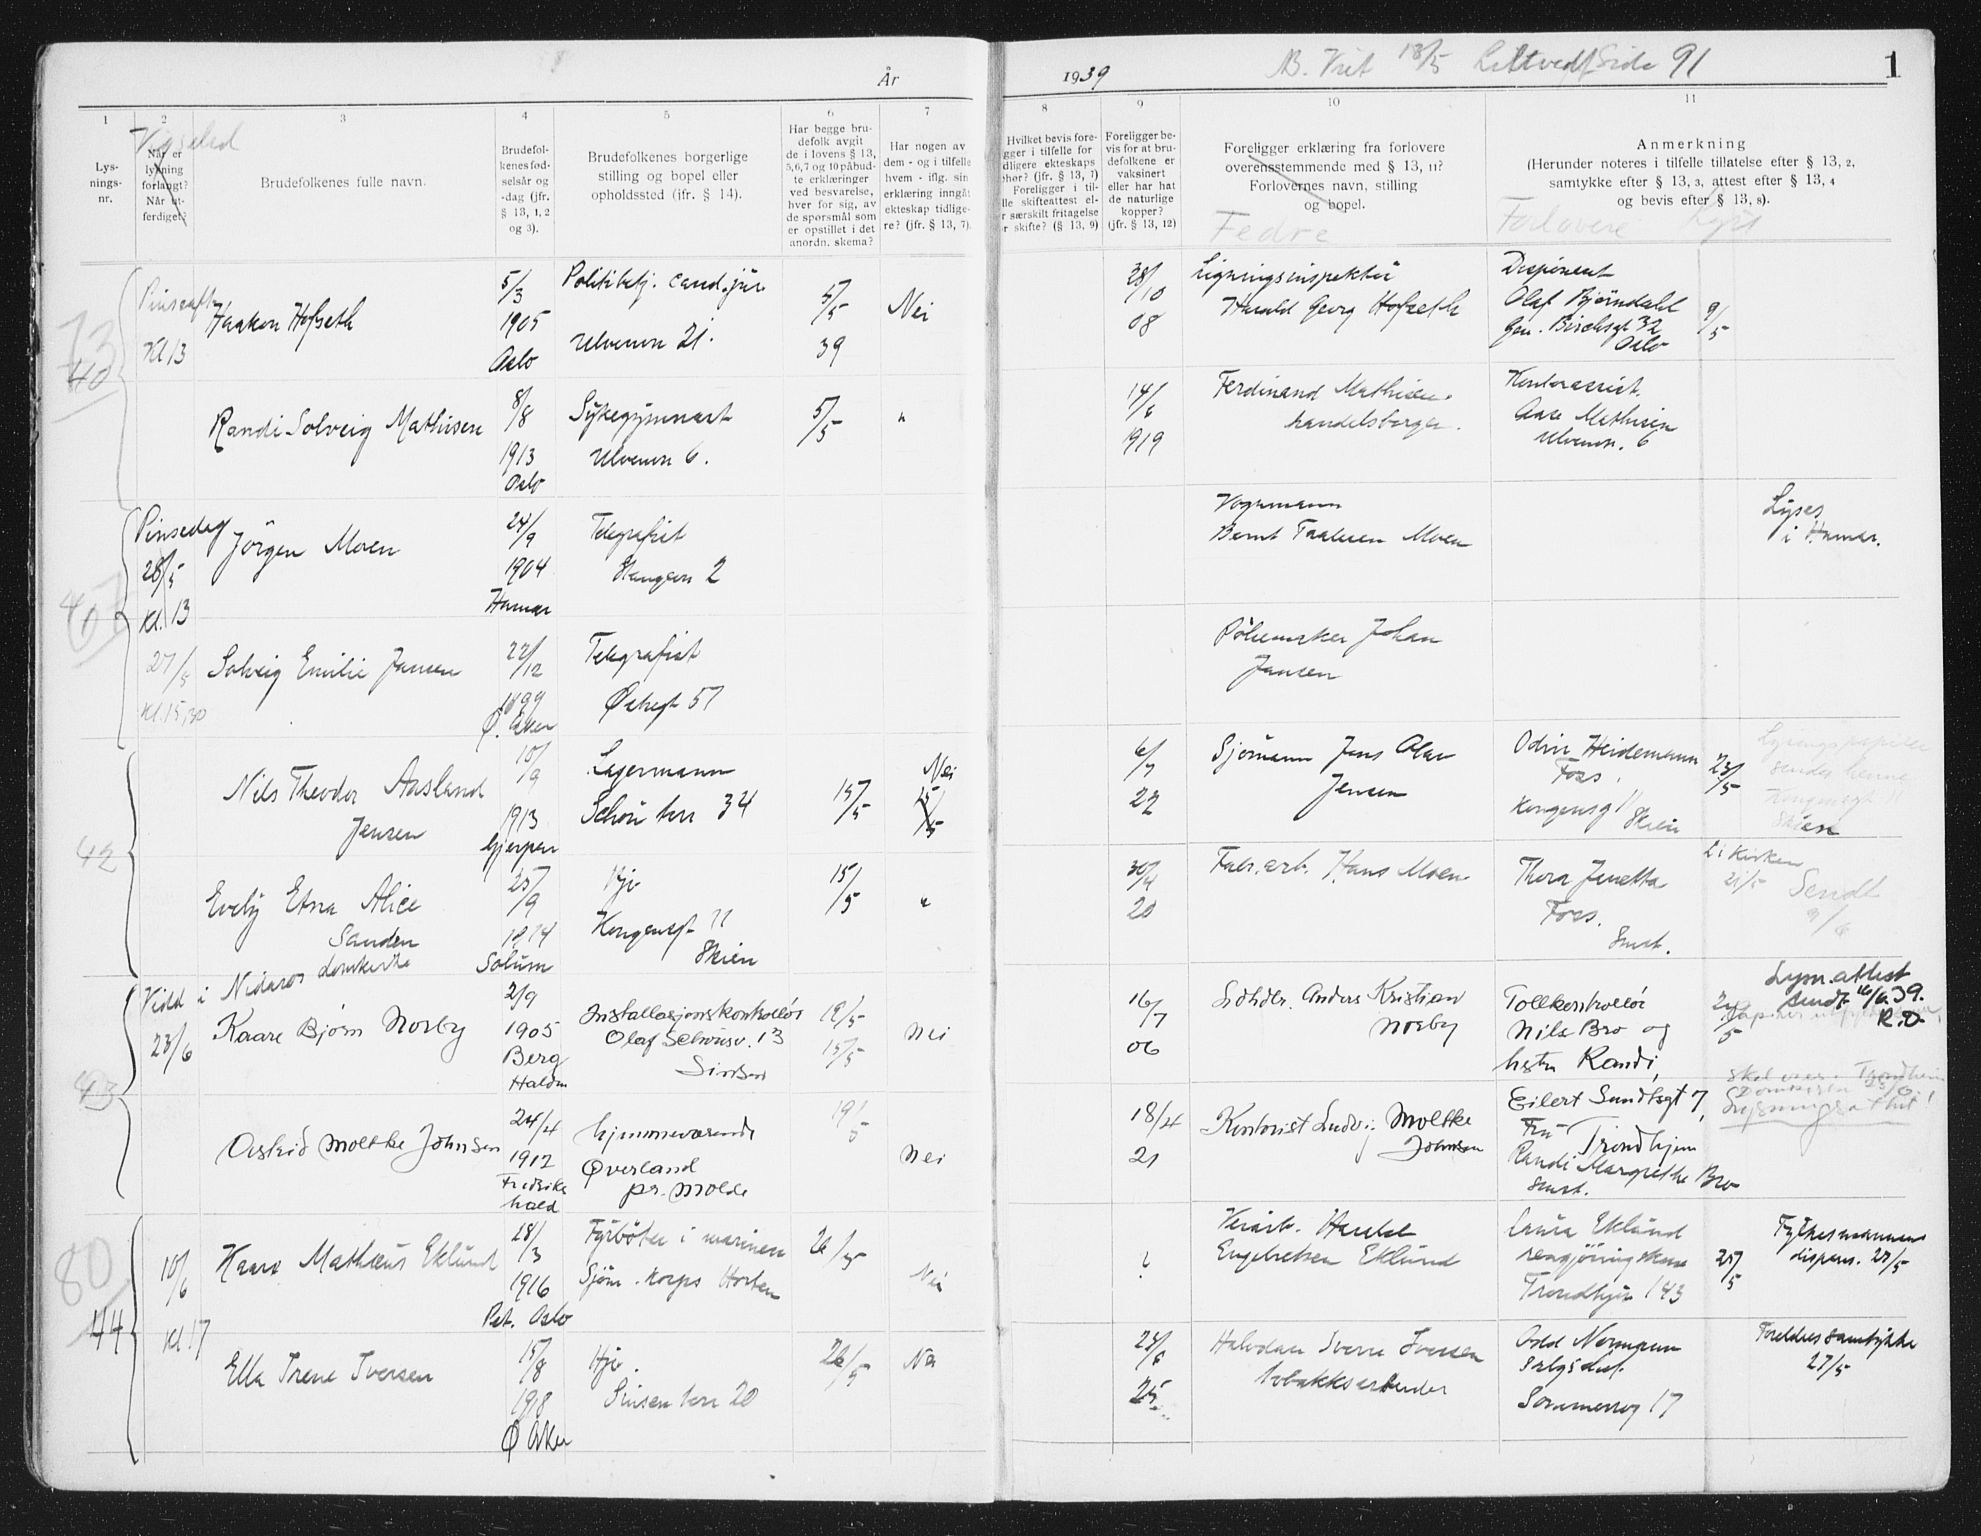 År
1939
18/5
Side 91
1
1
2
3
4
5
6
7
8
9
10
11
Lys-
nings-
nr.
Når er
lysning
forlangt?
Når ut-
ferdiget?
Brudefolkenes fulle navn.
Brudefol-
kenes fød-
selsår og
-dag (jfr.
§ 13, 1, 2
og 3).
Brudefolkenes borgerlige
stilling og bopel eller
opholdssted (jfr. § 14).
Har begge bru-
defolk avgit
de i lovens § 13,
5,6,7 og 10 påbud-
te erklæringer
ved besvarelse,
hver for sig, av
de spørsmål som
er opstillet i det
anordn. skema?
Har nogen av
dem - og i tilfelle
hvem - iflg. sin
erklæring inngåt
ekteskap tidlige-
re? (jfr. § 13, 7).
Hvilket bevis fore-
gger i tilfelle for
dligere ekteskaps
phør? (jfr. § 13, 7)
Foreligger i til-
lle skifteattest el-
r særskilt fritagelse
r skifte? (§ 13, 9)
Foreligger be-
vis for at bru-
defolkene er
vaksinert
eller har hat
de naturlige
kopper?
(jfr. § 13, 12)
Foreligger erklæring fra forlovere
overensstemmende med § 13, 11?
Forlovernes navn, stilling
og bopel.
Fedre
Anmerkning
(Herunder noteres i tilfelle tillatelse efter § 13, 2,
samtykke efter § 13, 3, attest efter § 13, 4
og bevis efter § 13, 8).
Forlovere
Lyst
73
40
Kl 13
Haakon Hofseth
5/3
1905
Oslo
cand. jur.
Ulvenvn 21.
5/5
39
Nei
28/10
08
Ligningsinspektør
Harald Georg Hofseth
Disponent
Olaf Bjørndahl
Gen. Birchsgt 32
Oslo
9/5
Randi Solveig Mathisen
8/8
1913
Oslo
Sykegymnast
Ulvenvn 6.
5/5
"
14/6
1919
Ferdinand Mathisen
handelsborger.
Kontorassist.
Aase Mathisen
Ulvenvn. 6
Pinsedag
28/5
Kl. 13
Jörgen Moen
24/9
1904
Hamar
Telegrafist
Haugern 2
Vognmann
Bernt Taalesen Moen
Lyses
i Hamar.
27/5
Kl. 15,30
Solveig Emilie Jansen
22/12
1899
Ø. Aker
Telegrafist
Økernt 57
Pølsemaker Johan
Jansen
42
Nils Theodor Aasland
Jensen
10/9
1913
Gjerpen
Lagermann
34
15/5
Nei
15/5
6/7
22
Sjømann Jens Olav
Jensen
Odin Heidemann
Foss.
Kongensg 11 Skien
23/5
Lysningspapirer
sendes henne
Kongensgt 11
Skien
Evely Etna Alice
Sanden
25/9
1914
Solum
Hjv
Kongensgt 11
Skien
15/5
"
30/4
20
Fabr. arb. Hans Moen
Thora Jenetta
Foss.
Smst.
L i kirken
21/5
Sendt
9/6
43
Vidd i Nidaros domkirke
23/6
Kaare Bjørn Norby
2/9
1905
Berg
Halden
Installasjonskontrollør
Olaf Schousv. 13
Sinsen
19/5
15/5
Nei
16/7
06
Anders Kristian
Norby
Tollkontrollør
Nils Bro og
hustru Randi,
Lysn. attest
sendt 16/6 39.
R.D.
Eilert Sundtsgt 7,
Trondhjem
Lysningsattest
Astrid Moltke Johnsen
24/4
1912
Fredriks
hald
hjemmeværende
Øverland
pr. Molde
19/5
Nei
18/4
21
Kontorist Ludvig Moltke
Johnsen
Fru
Randi Margrethe Bro
Smst.
80
44
10/6
Kl 17
Kaare Mathæus Eklund
18/3
1916
Pet. Oslo
Fyrbøter i marinen
Sjøm. korps Horten
26/5
Nei
?
Harald
Engebretsen Eklund
Laura Eklund
rengjøringskone
Trondhjv 143
25/5
Fylkesmannens
dispens. 27/5
Ella Irene Iversen
15/8
1918
Ø Aker
Hjv.
Sinsen terr 20
26/5
Nei
25
Halvdan Sverre Iversen
tobakksarbeider
27/5